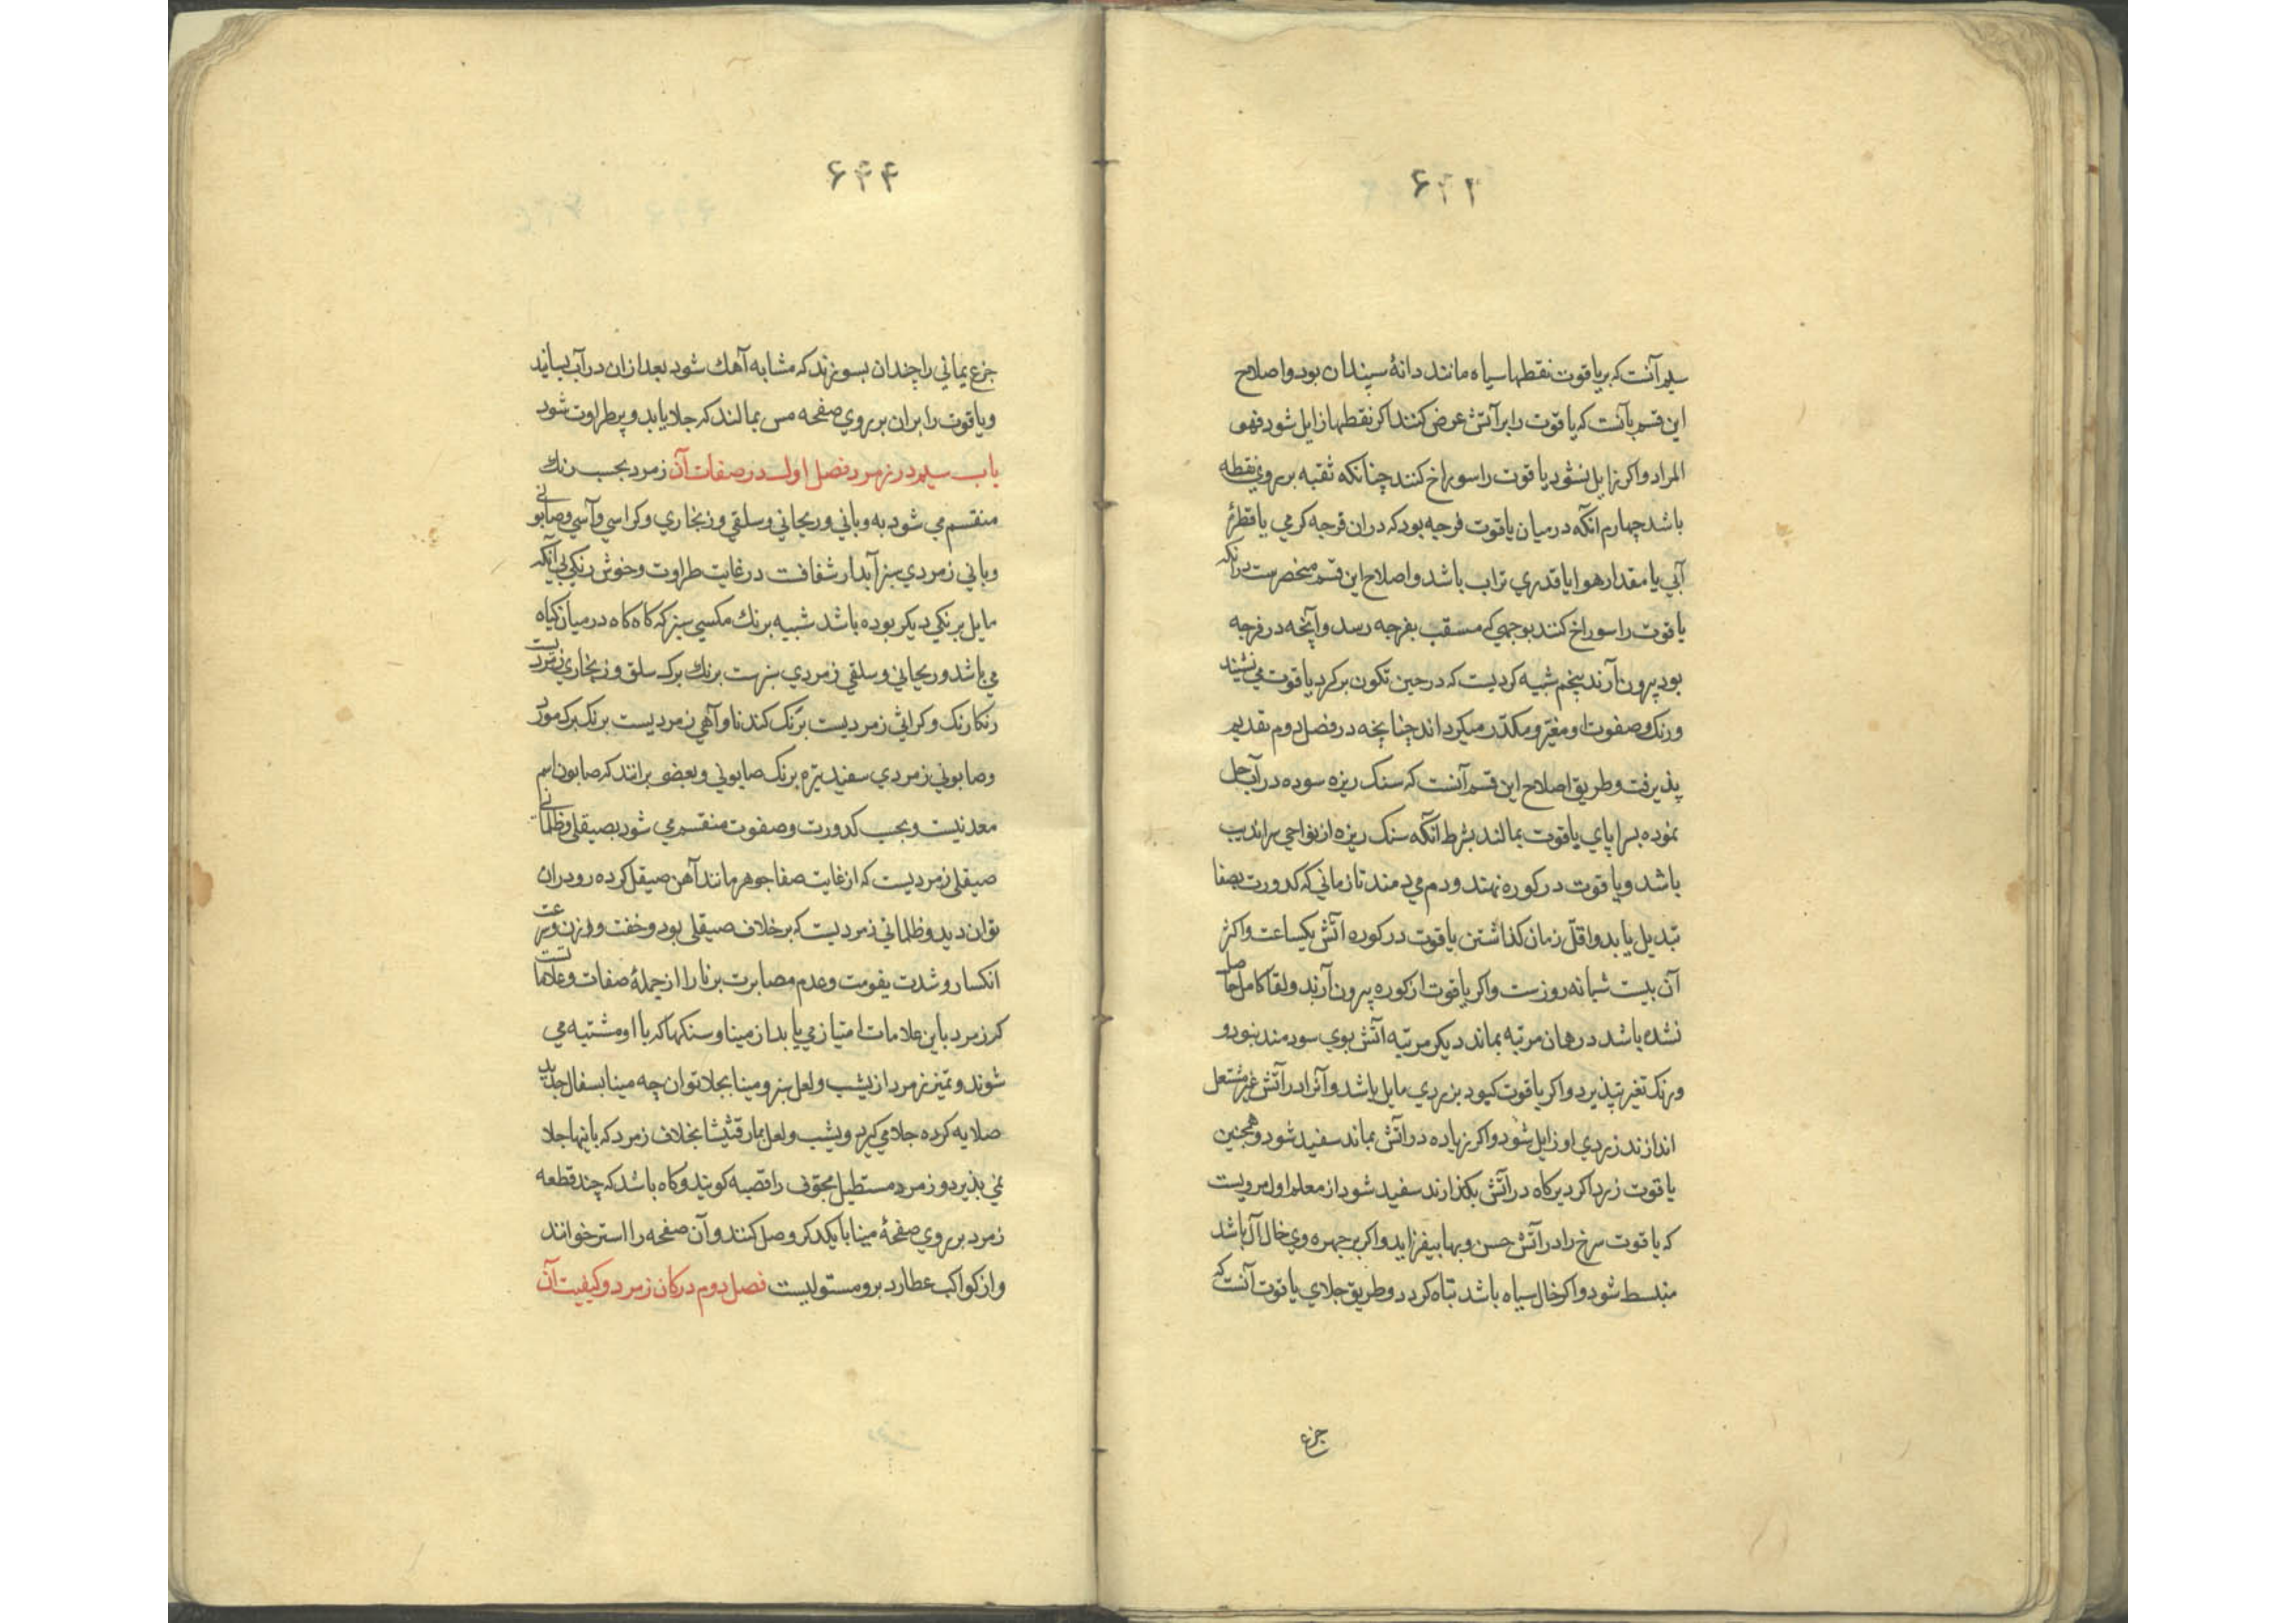 ۶۴۲
سیم آنست که بر یاقوت نقطها سیاه مانند دانهٔ سپندان بود و اصلاح
این قسم بآنست که یاقوت را بر آتش عرض کنند اکر نقطها زایل شود فهو
المراد و اکر زایل نشود یاقوت را سوراخ کنند چنانکه ثقبه بر روی نقطه
باشد چهارم آنکه در میان یاقوت فرجه بود که در ان فرجه کرمی یا قطرهٔ
آبی یا مقدار هوا یا قدری تراب باشد و اصلاح این قسم منحصرست در انکه
یاقوت را سوراخ کنند بوجهی که مسقب بفرجه رسد و آنچه در فرجه
بود بیرون آرند پنجم شبیه کردیست که در حین تکون بر کرد یاقوت می نشیند
و رنک و صفوت او مغیّر و مکدّر میکرداند چنانچه در فصل دوم تقدیم
پذیرفت و طریق اصلاح این قسم آنست که سنک ریزه سوده در آب حل
نموده بسراپای یاقوت بمالند بشرط آنکه سنک ریزه از نواحی سراندیب
باشد و یاقوت در کوره نهند و دم می دمند تا زمانی که کدورت بصفا
تبدیل یابد و اقلّ زمان کذاشتن یاقوت در کوره آتش یکساعت و اکثر
آن بیست شبانه روزست و اکر یاقوت از کوره بیرون آرند و لقا کامل حاصل
نشده باشد در همان مرتبه بماند دیکر مرتبه آتش بوی سودمند نبود و
و رنک تغیر نپذیرد و اکر یاقوت کبود بزردی مایل باشد و آنرا در آتش غیر مشتعل
اندازند زردی او زایل شود و اکر زیاده در آتش بماند سفید شود و همچنین
یاقوت زرد اکر دیرکاه در آتش بکذارند سفید شود از معلم اول مرویست
که یاقوت سرخ را در آتش حسن و بها بیفزاید و اکر بر چهره وی خال آل باشد
منبسط شود و اکر خال سیاه باشد تباه کردد و طریق جلای یاقوت آنست که
جزع
۶۴۴
جزع یمانی را چندان بسوزند که مشابه آهک شود بعد ازان در آب بسایند
و یاقوت را بران بر روی صفحه مس بمالند که جلا یابد و پر طراوت شود
باب سیم در زمرد فصل اول در صفات آن زمرد بحسب رنک
منقسم می شود به وبانی و ریحانی و سلقی و زنخاری و کراسی و آسی و صابونی
وبانی زمردی سبز آبدار شفافت در غایت طراوت و خوش رنکی بی آنکه
مایل برنکی دیکر بوده باشد شبیه برنک مکسی سبز که کاه کاه در میان کیاه
می باشد و ریحانی و سلقی زمردی سبزست برنک برکه سلق و زنخاری زمردیست
زنکار رنک و کراثی زمردیست برنک کندنا و آهی زمردیست برنک برک مورد
و صابونی زمردی سفید تیره برنک صابونی و بعضی برانند که صابون اسم
معدنیست و بحسب کدورت و صفوت منقسم می شود بصیقلی و ظلمانی
صیقلی زمردیست که از غایت صفا جوهر مانند آهن صیقل کرده رو دران
توان دید و ظلمانی زمردیست که بر خلاف صیقلی بود و خفت وزن و سرعت
انکسار و شدت یفومت و عدم مصابرت بر نار را از جملهٔ صفات و علاماتست
کر زمرد باین علامات امتیاز می یابد از مینا و سنکها که با او مشتبه می
شوند و تمیز زمرد از یشب و لعل سبز و مینا بجلا توان چه مینا بسفال جدید
صلایه کرده جلا می کیرد و یشب و لعل بمارقشیشا بخلاف زمرد که باینها جلا
نمی پذیرد و زمرد مستطیل مجوّف را قصبه کویند و کاه باشد که چند قطعه
زمرد بر روی صفحهٔ مینا با یکدکر وصل کنند و آن صفحه را استر خوانند
و از کواکب عطارد برو مستولیست فصل دوم در کان زمرد و کیفیت آن